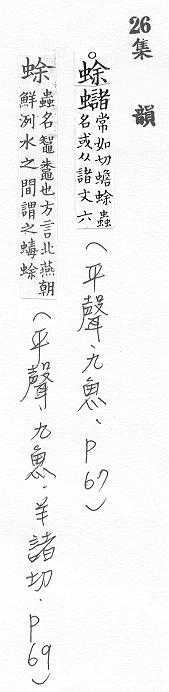 26集 韻
。蜍蠩常如切蟾蜍蟲名或从諸文六(平聲.九魚.p67)
蜍蟲名鼅鼄也方言北燕朝鮮洌水之間謂之蝳蜍(平聲.九魚.羊諸切.p69)